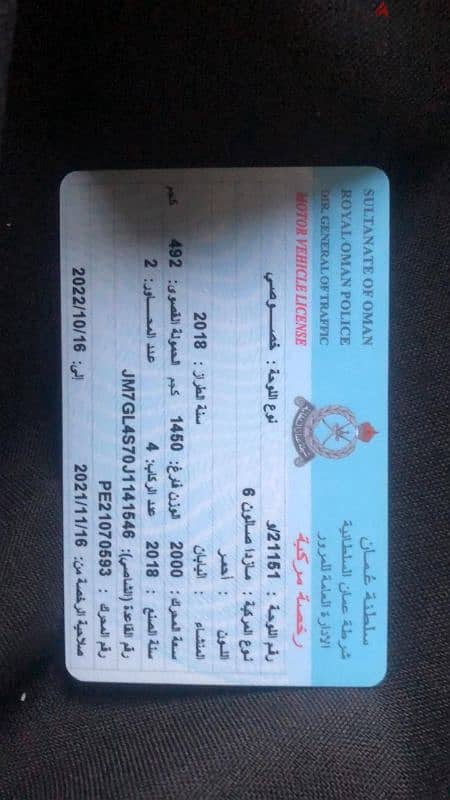 SULTANATE OF OMAN سلطنة عمان
ROYAL OMAN POLICE شرطة عمان السلطانية
DIR. GENERAL OF TRAFFIC الادارة العامة للمرور
MOTOR VEHICLE LICENSE رخصة مركبة
رقم اللوحة : 21151/و نوع اللوحة : خصوصي
نوع المركبة : مازدا صالون 6
اللون : أحمر
المنشاء : اليابان سنة الطراز : 2018
سعة المحرك: 2000 الوزن فارغ: 1450 كجم الحمولة القصوى: 492 كجم
سنة الصنع : 2018 عدد الركاب: 4 عدد المحاور: 2
رقم القاعدة (الشاصي): JM7GL4S70J1141546
رقم المحرك : PE21070593
صلاحية الرخصة من: 2021/11/16 إلى: 2022/10/16